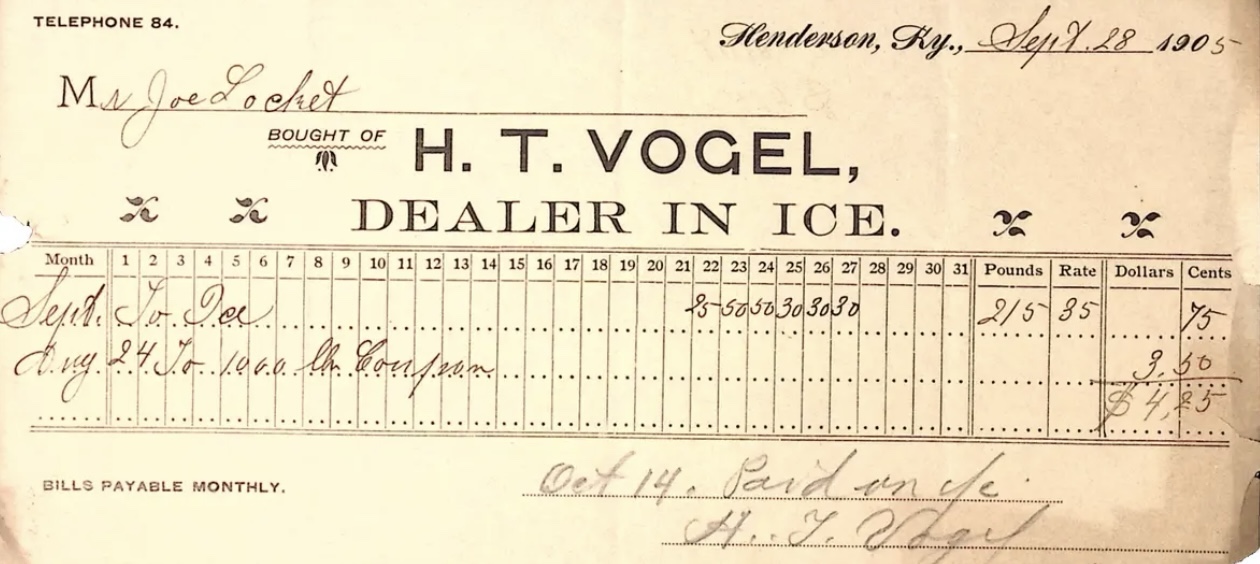 TELEPHONE 84.
Henderson, Ky., Sept. 28 1905
Mr Joe Locket
BOUGHT OF
H. T. VOGEL,
DEALER IN ICE.
Month 1 2 3 4 5 6 7 8 9 10 11 12 13 14 15 16 17 18 19 20 21 22 23 24 25 26 27 28 29 30 31 Pounds Rate Dollars Cents
Sept. To Ice 25 50 50 30 30 30 215 35 75
Aug. 24 To 1000 lb Coupon 3.50
$4,25
BILLS PAYABLE MONTHLY.
Oct 14. Paid
H. T. Vogel